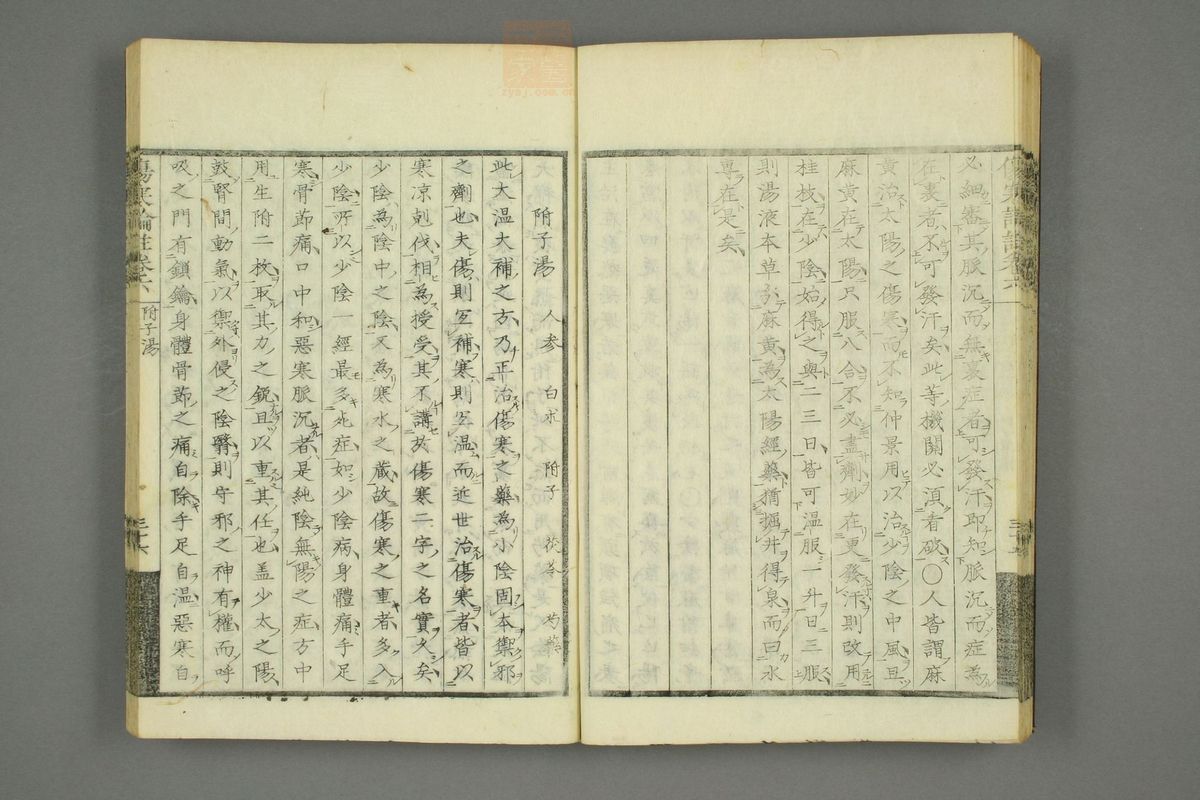 必細審其脈沉而無裏症者可發汗即知脈沉而症為
在裏者不可發汗矣此等機關必須看破〇人皆謂麻
黄治太陽之傷寒而不知仲景用以治少陰之中風且
麻黄在太陽只服八合不必盡劑妙在更發汗則改用
桂枝在少陰始得之與二三日皆可温服一升日三服
則湯液本草以麻黄為太陽經藥猶掘井得泉而曰水
専在是矣
附子湯 人参 白朮 附子 茯苓 芍藥
此大温大補之方乃正治傷寒之藥為少陰固本禦邪
之劑也夫傷則宜補寒則宜温而近世治傷寒者皆以
寒凉剋伐相為授受其不講於傷寒二字之名實久矣
少陰為陰中之陰又為寒水之蔵故傷寒之重者多入
少陰所以少陰一經最多死症如少陰病身體痛手足
寒骨節痛口中和惡寒脈沉者是純陰無陽之症方中
用生附二枚取其力之鋭且以重其任也盖少太之陽
鼓腎間動氣以禦外侵之陰翳則守邪之神有權而呼
吸之門有鎖鑰身體骨節之痛自除手足自温惡寒自
傷寒論註巻六
附子湯
三十六
zysj.com.cn